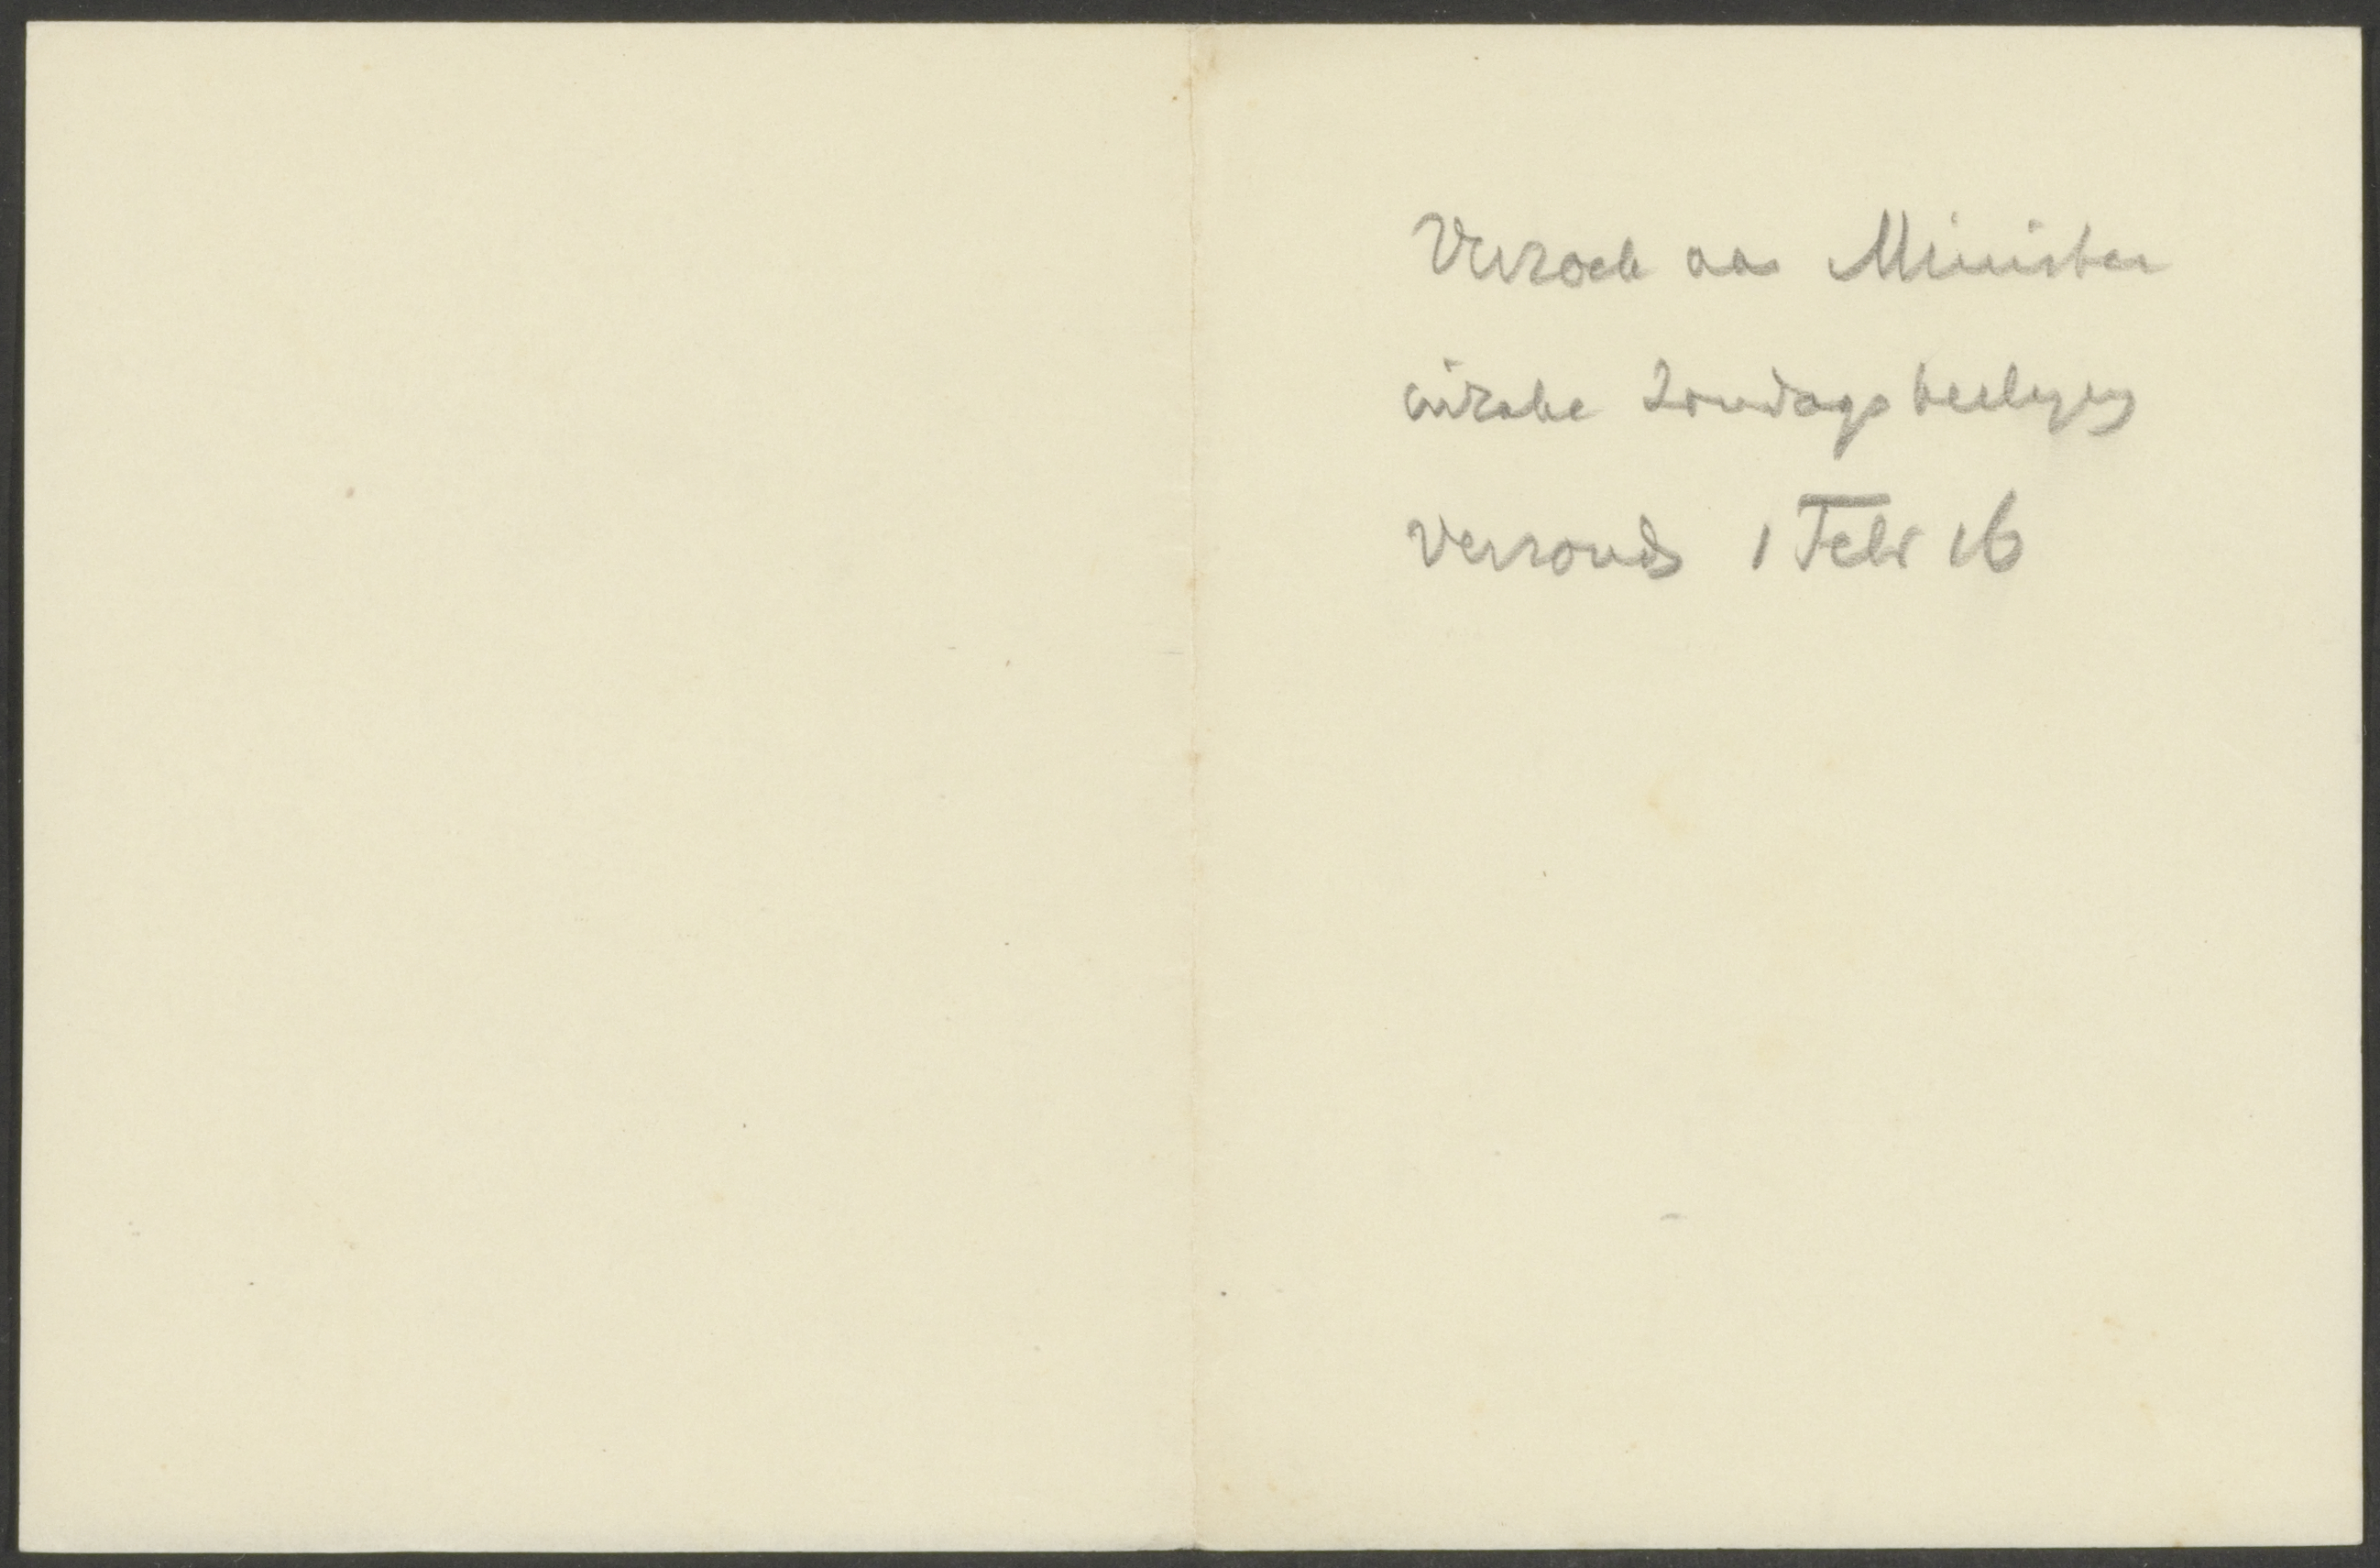 Verzoek aan Minister
inzake Zondagsheiliging
Verzonden 1 Febr 16